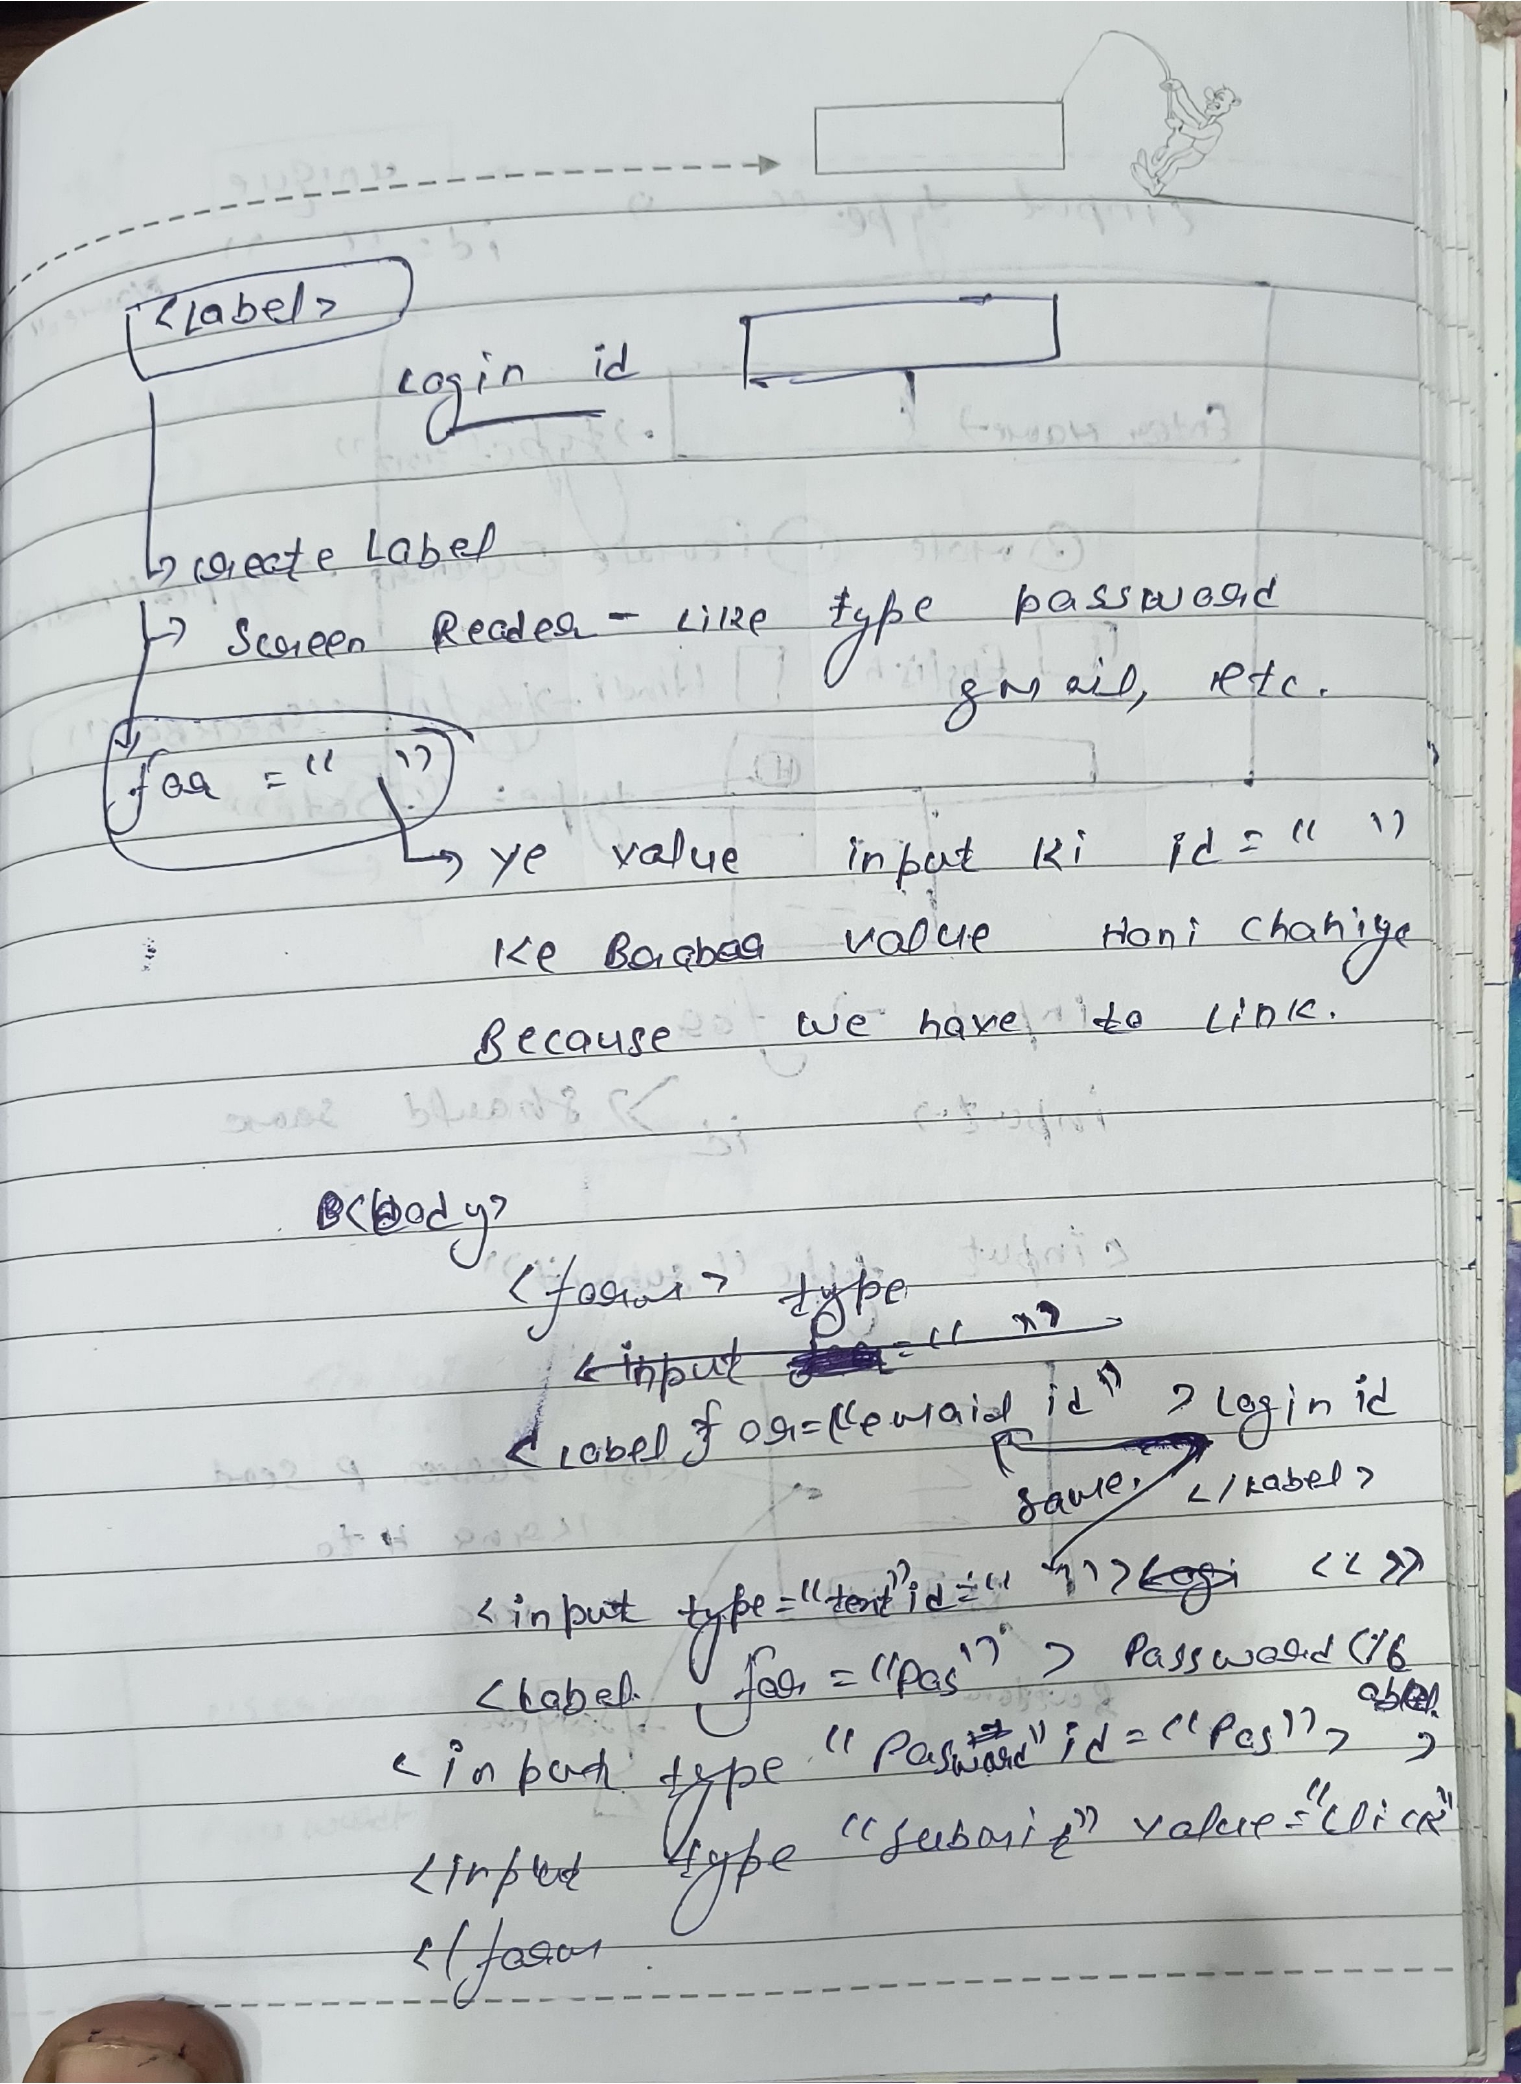 <Label>
Login id
create Label
Screen Reader - Like type password
gmail, etc.
for = " "
ye value input ki id = " "
ke Barabar value Honi chahiye
Because we have to Link.
<body>
<form> type
<input = " "
<Label for="emaid id" > Login id
same. </Label>
<input type="text" id=" "> Logi " "
<Label for = "Pas" > Password </l
abel
<input type "Password" id = "Pas"> >
<input type "submit" value="Click"
</form